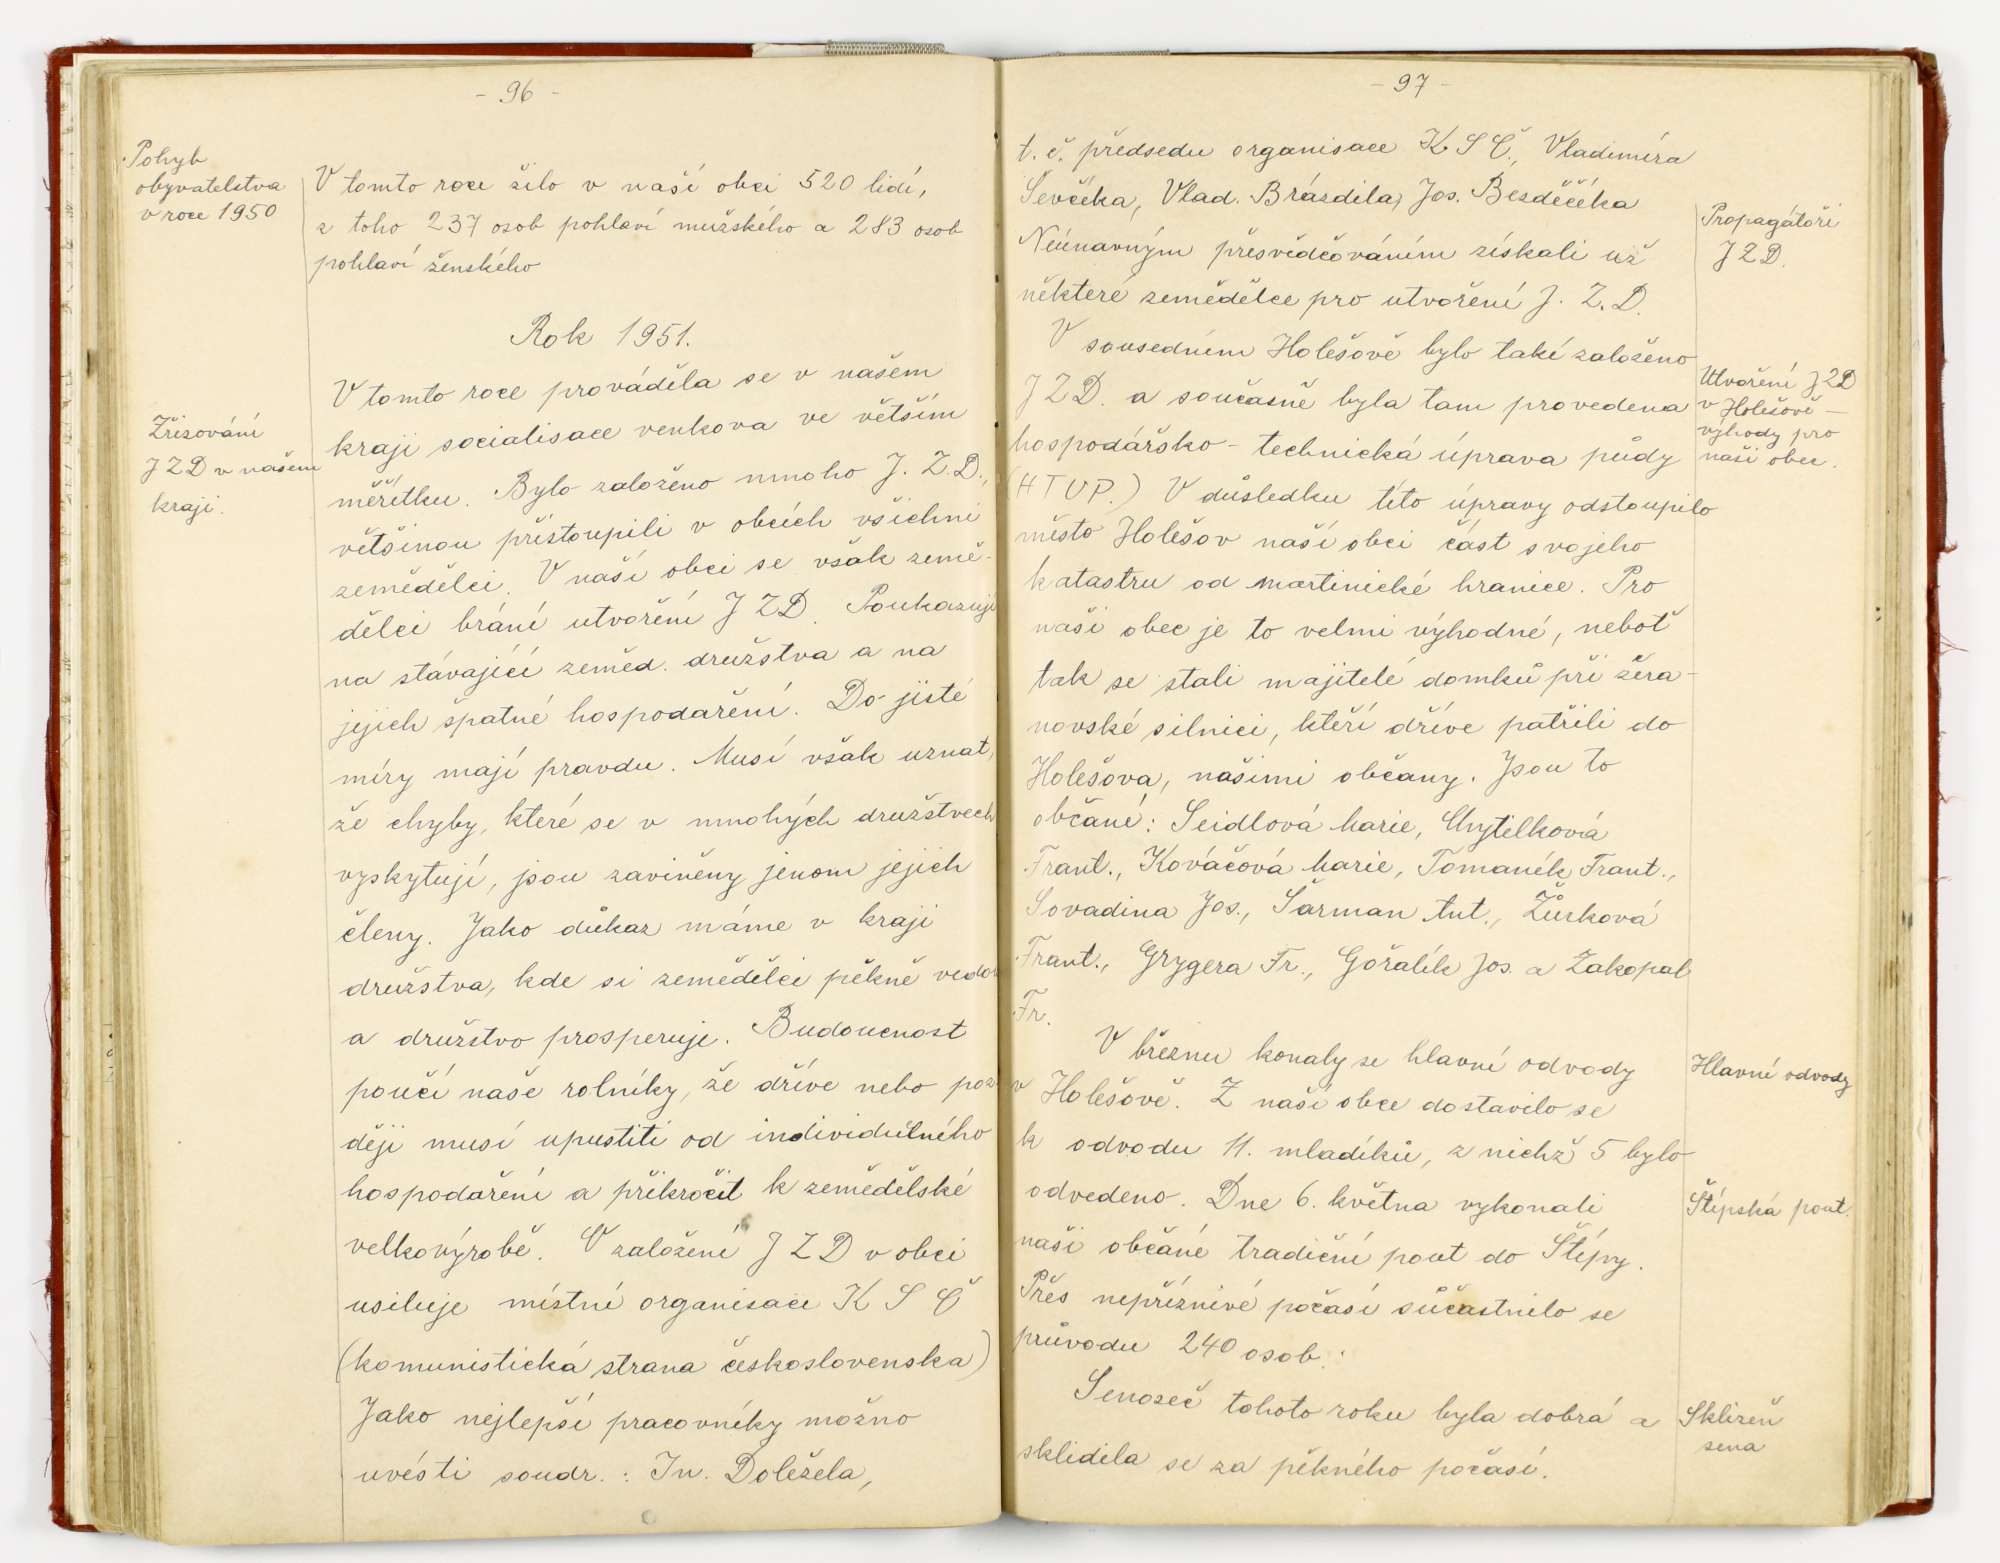 - 96 -
Pohyb
obyvatelstva
v roce 1950
V tomto roce žilo v naší obci 520 lidí,
z toho 237 osob pohlaví mužského a 283 osob
pohlaví ženského
Rok 1951.
Zřizování
JZD v našem
kraji.
V tomto roce prováděla se v našem
kraji socialisace venkova ve větším
měřítku. Bylo založeno mnoho J. Z. D.,
většinou přistoupili v obcích všichni
zemědělci. V naší obci se však země-
dělci brání utvoření JZD. Poukazují
na stávající zeměd. družstva a na
jejich špatné hospodaření. Do jisté
míry mají pravdu. Musí však uznat,
že chyby, které se v mnohých družstvech
vyskytují, jsou zaviněny jenom jejich
členy. Jako důkaz máme v kraji
družstva, kde si zemědělci pěkně vedou
a družstvo prosperuje. Budoucnost
poučí naše rolníky, že dříve nebo poz-
ději musí upustiti od individuelného
hospodaření a přikročit k zemědělské
velkovýrobě. O založení JZD v obci
usiluje místní organisace KSČ
(komunistická strana československa)
Jako nejlepší pracovníky možno
uvésti soudr. : In. Doležela,
- 97 -
t. č. předsedu organisace KSČ, Vladimíra
Ševčíka, Vlad. Brázdila, Jos. Bezděčíka
Neúnavným přesvědčováním získali už
některé zemědělce pro utvoření J. Z. D.
Propagátoři
JZD.
V sousedním Holešově bylo také založeno
JZD. a současně byla tam provedena
hospodářsko - technická úprava půdy
(HTUP.) V důsledku této úpravy odstoupilo
město Holešov naší obci část svojeho
katastru od martinické hranice. Pro
naši obec je to velmi výhodné, neboť
tak se stali majitelé domků při žera-
novské silnici, kteří dříve patřili do
Holešova, našimi občany. Jsou to
občané: Seidlová Marie, Chytilková
Frant., Kováčová Marie, Tomaněk Frant.,
Sovadina Jos., Šarman Ant., Žůrková
Frant., Grygera Fr., Gořalík Jos. a Zakopal
Fr.
Utvoření JZD
v Holešově -
výhody pro
naši obec.
V březnu konaly se hlavní odvody
v Holešově. Z naší obce dostavilo se
k odvodu 11. mladíků, z nichž 5 bylo
odvedeno. Dne 6. května vykonali
naši občané tradiční pout do Štípy.
Přes nepříznivé počasí súčastnilo se
průvodu 240 osob.
Hlavní odvody
Štípská pout.
Senoseč tohoto roku byla dobrá a
sklidila se za pěkného počasí.
Sklizeň
sena